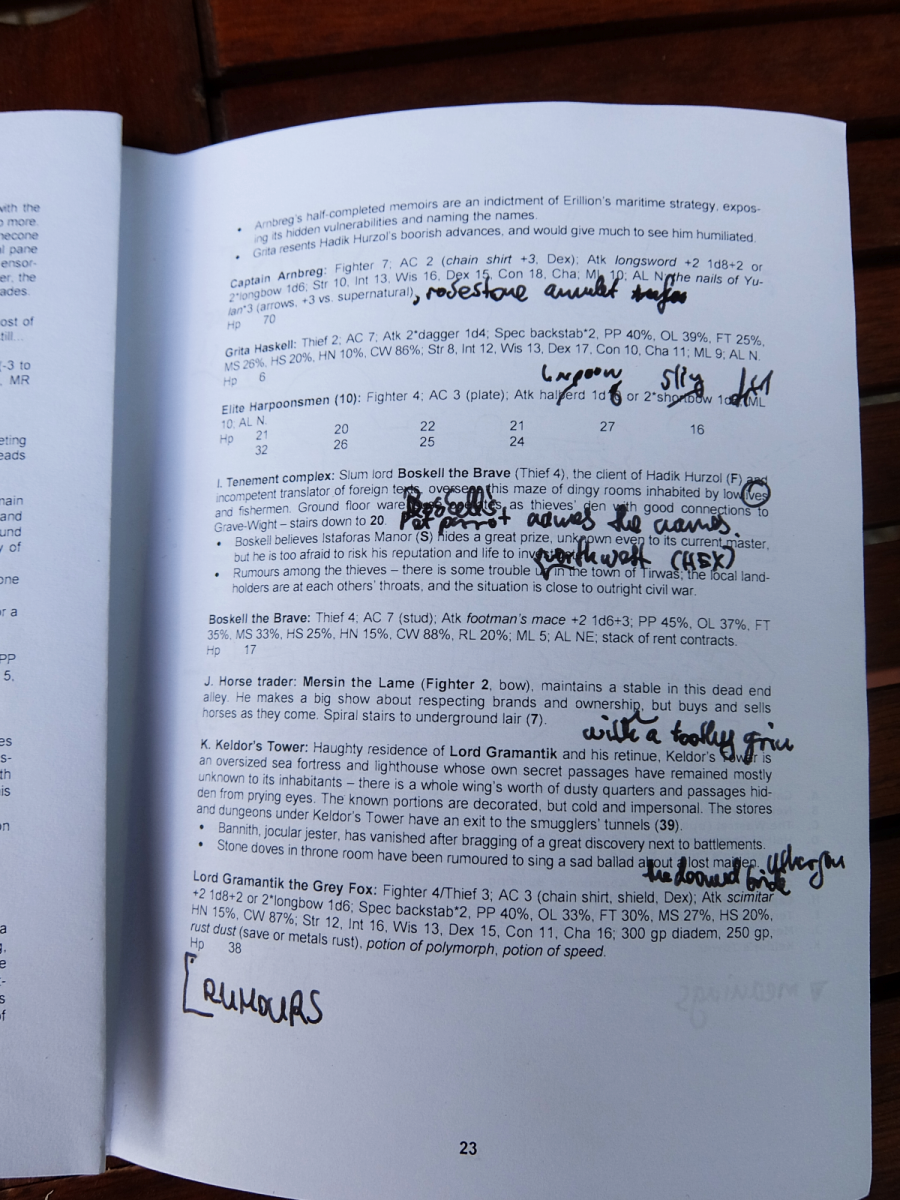 with the
o more.
necone
al pane
ensor-
er, the
ades.
ost of
till...
E-3 to
, MR
eting
eads
nain
and
und
y of
one
or a
PP
5,
es
s-
th
is
on
a
e
s
of
• Arnbreg's half-completed memoirs are an indictment of Erillion's maritime strategy, expos-
ing its hidden vulnerabilities and naming the names.
• Grita resents Hadik Hurzol's boorish advances, and would give much to see him humiliated.
Captain Arnbreg: Fighter 7; AC 2 (chain shirt +3, Dex); Atk longsword +2 1d8+2 or
2*longbow 1d6; Str 10, Int 13, Wis 16, Dex 15, Con 18, Cha; ML 10; AL N; the nails of Yu-
lan*3 (arrows, +3 vs. supernatural), rosestone amulet
Hp 70
Grita Haskell: Thief 2; AC 7; Atk 2*dagger 1d4; Spec backstab*2, PP 40%, OL 39%, FT 25%,
MS 26%, HS 20%, HN 10%, CW 86%; Str 8, Int 12, Wis 13, Dex 17, Con 10, Cha 11; ML 9; AL N.
Hp 6
harpoon
Elite Harpoonsmen (10): Fighter 4; AC 3 (plate); Atk halberd 1d or 2*shortbow ML
10; AL N.
Hp 21 20 22 21 27 16
32 26 25 24
I. Tenement complex: Slum lord Boskell the Brave (Thief 4), the client of Hadik Hurzol (F) and
incompetent translator of foreign texts, oversees this maze of dingy rooms inhabited by lowlives
and fishermen. Ground floor as thieves' den with good connections to
Boskell's
Grave-Wight – stairs down to 20. Pet parrot names the names.
• Boskell believes Istaforas Manor (S) hides a great prize, unknown even to its current master,
but he is too afraid to risk his reputation and life to
northwest (HEX)
• Rumours among the thieves – there is some trouble in the town of Tirwas; the local land-
holders are at each others' throats, and the situation is close to outright civil war.
Boskell the Brave: Thief 4; AC 7 (stud); Atk footman's mace +2 1d6+3; PP 45%, OL 37%, FT
35%, MS 33%, HS 25%, HN 15%, CW 88%, RL 20%; ML 5; AL NE; stack of rent contracts.
Hp 17
J. Horse trader: Mersin the Lame (Fighter 2, bow), maintains a stable in this dead end
alley. He makes a big show about respecting brands and ownership, but buys and sells
horses as they come. Spiral stairs to underground lair (7).
with a toothy grin
K. Keldor's Tower: Haughty residence of Lord Gramantik and his retinue, Keldor's Tower is
an oversized sea fortress and lighthouse whose own secret passages have remained mostly
unknown to its inhabitants – there is a whole wing's worth of dusty quarters and passages hid-
den from prying eyes. The known portions are decorated, but cold and impersonal. The stores
and dungeons under Keldor's Tower have an exit to the smugglers' tunnels (39).
• Bannith, jocular jester, has vanished after bragging of a great discovery next to battlements.
• Stone doves in throne room have been rumoured to sing a sad ballad about a lost maiden.
the doomed bride
Lord Gramantik the Grey Fox: Fighter 4/Thief 3; AC 3 (chain shirt, shield, Dex); Atk scimitar
+2 1d8+2 or 2*longbow 1d6; Spec backstab*2, PP 40%, OL 33%, FT 30%, MS 27%, HS 20%,
HN 15%, CW 87%; Str 12, Int 16, Wis 13, Dex 15, Con 11, Cha 16; 300 gp diadem, 250 gp,
rust dust (save or metals rust), potion of polymorph, potion of speed.
Hp 38
[RUMOURS
23